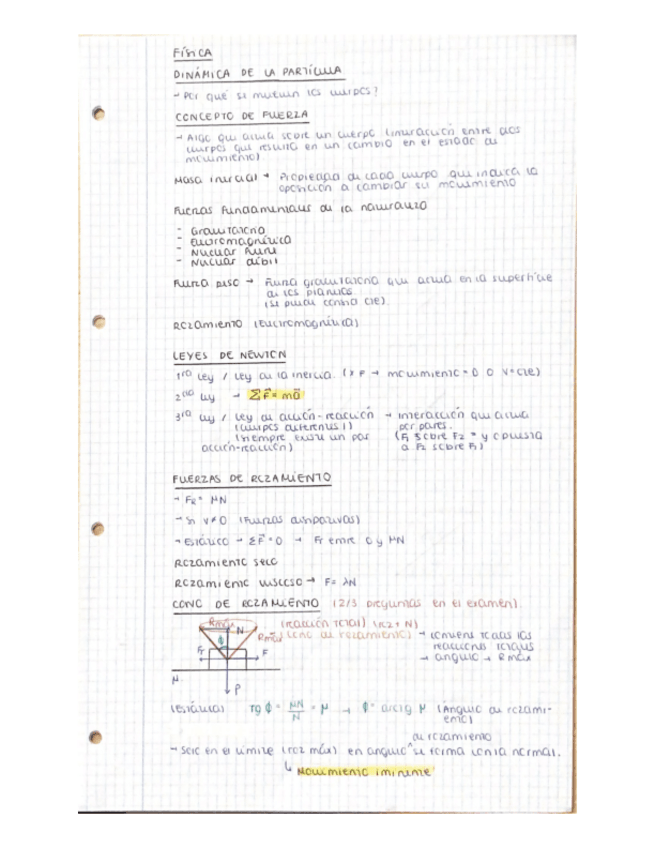 FÍSICA
DINÁMICA DE LA PARTÍCULA
→ Por qué se mueven los cuerpos?
CONCEPTO DE FUERZA
→ Algo que actúa sobre un cuerpo (interacción entre dos
cuerpos que resulta en un cambio en el estado de
movimiento)
Masa inercial → Propiedad de cada cuerpo que indica la
oposición a cambiar su movimiento
Fuerzas Fundamentales de la naturaleza
- Gravitatoria
- Electromagnética
- Nuclear fuerte
- Nuclear débil
Fuerza peso → Fuerza gravitatoria que actúa en la superficie
de los planetas.
(se puede consid cte).
Rozamiento (Electromagnética)
LEYES DE NEWTON
1ra Ley / Ley de la inercia. ( F → movimiento = 0 o v=cte)
2da Ley → ΣF⃗ = ma⃗
3ra Ley / Ley de acción-reacción → interacción que actúa
(cuerpos diferentes!) por pares.
(siempre existe un par (F1 sobre F2 = y opuesta
acción-reacción) a F2 sobre F1)
FUERZAS DE ROZAMIENTO
→ FR = μN
→ Si v≠0 (Fuerzas disipativas)
→ Estático → ΣF⃗ = 0 → Fr entre 0 y μN
Rozamiento seco
Rozamiento viscoso → F = λN
CONO DE ROZAMIENTO (2/3 preguntas en el examen).
Rmáx N (reacción total) (Rz + N)
Rmáx (cono de rozamiento) → contiene todas las
φ reacciones totales
Fr F → angulo → Rmáx
μ
P
(estático) tg φ = μN/N = μ → φ = arctg μ (Ángulo de rozami-
ento)
de rozamiento
→ Solo en el límite (roz máx) en angulo ^ se forma con la normal.
↳ Movimiento iminente